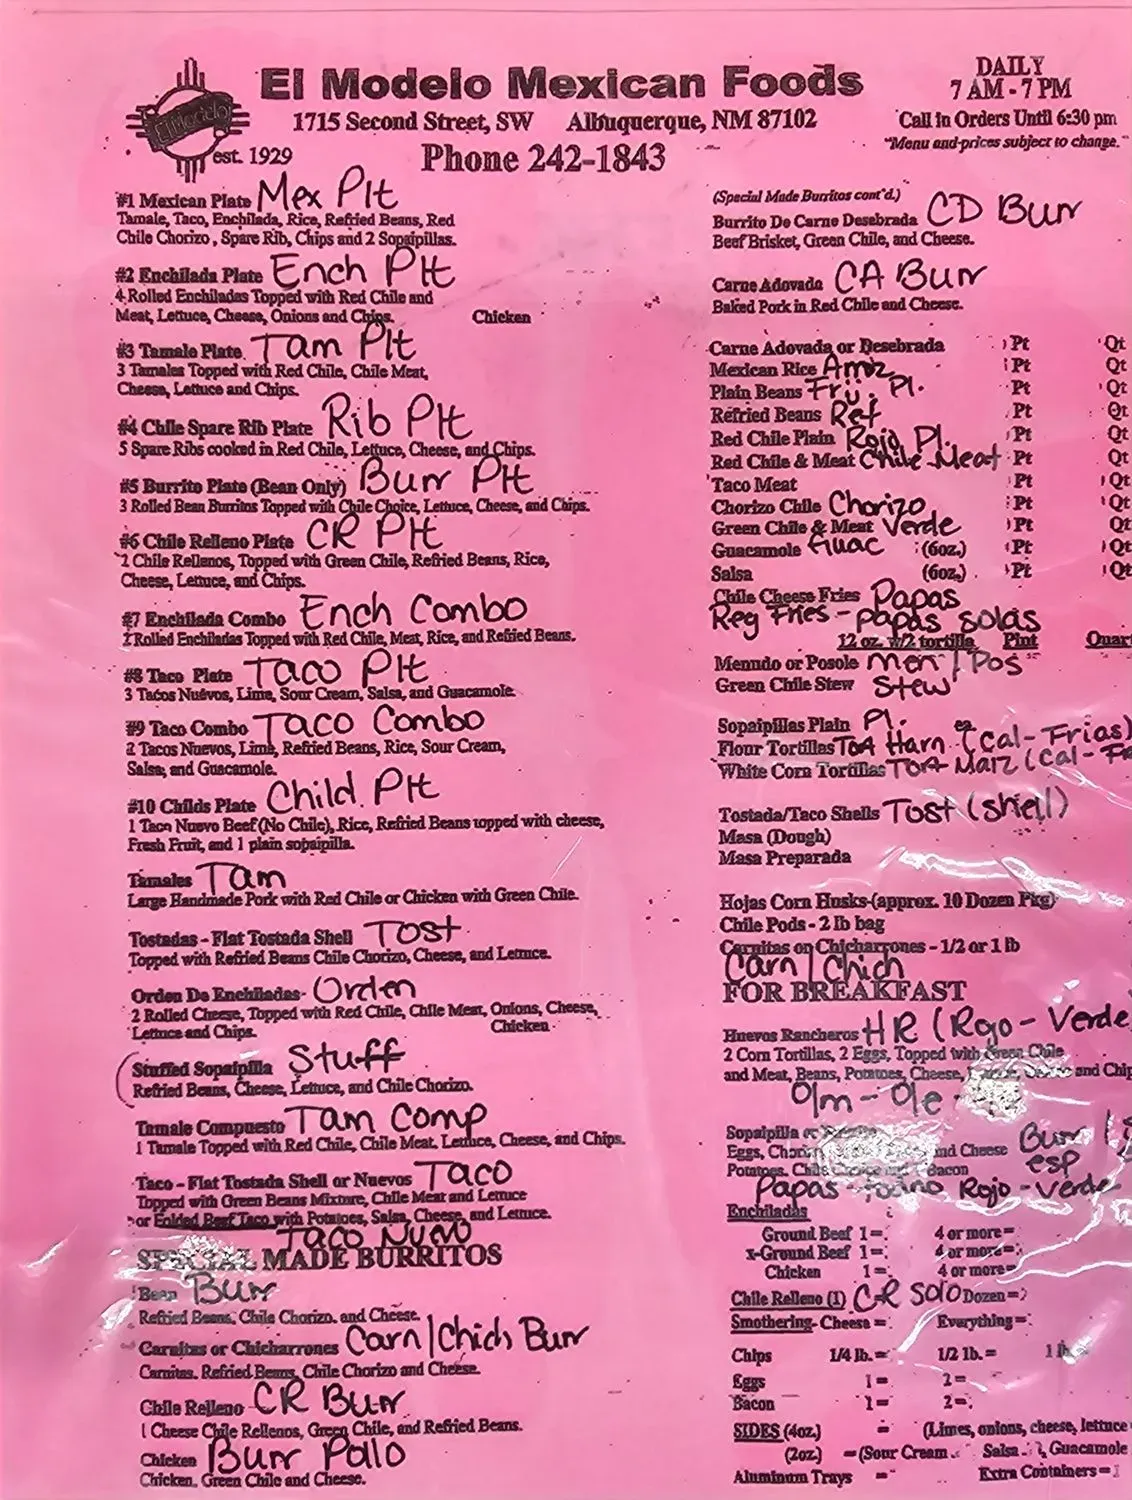 El Modelo Mexican Foods
1715 Second Street, SW Albuquerque, NM 87102
Phone 242-1843
El Modelo
est. 1929
DAILY
7 AM - 7 PM
Call in Orders Until 6:30 pm
"Menu and prices subject to change."
#1 Mexican Plate Mex Plt
Tamale, Taco, Enchilada, Rice, Refried Beans, Red
Chile Chorizo, Spare Rib, Chips and 2 Sopaipillas.
#2 Enchilada Plate Ench Plt
4 Rolled Enchiladas Topped with Red Chile and
Meat, Lettuce, Cheese, Onions and Chips. Chicken
#3 Tamale Plate Tam Plt
3 Tamales Topped with Red Chile, Chile Meat,
Cheese, Lettuce and Chips.
#4 Chile Spare Rib Plate Rib Plt
5 Spare Ribs cooked in Red Chile, Lettuce, Cheese, and Chips.
#5 Burrito Plate (Bean Only) Burr Plt
3 Rolled Bean Burritos Topped with Chile Choice, Lettuce, Cheese, and Chips.
#6 Chile Relleno Plate CR Plt
2 Chile Rellenos, Topped with Green Chile, Refried Beans, Rice,
Cheese, Lettuce, and Chips.
#7 Enchilada Combo Ench Combo
2 Rolled Enchiladas Topped with Red Chile, Meat, Rice, and Refried Beans.
#8 Taco Plate Taco Plt
3 Tacos Nuevos, Lime, Sour Cream, Salsa, and Guacamole.
#9 Taco Combo Taco Combo
2 Tacos Nuevos, Lime, Refried Beans, Rice, Sour Cream,
Salsa, and Guacamole.
#10 Childs Plate Child Plt
1 Taco Nuevo Beef (No Chile), Rice, Refried Beans topped with cheese,
Fresh Fruit, and 1 plain sopaipilla.
Tamales Tam
Large Handmade Pork with Red Chile or Chicken with Green Chile.
Tostadas - Flat Tostada Shell Tost
Topped with Refried Beans Chile Chorizo, Cheese, and Lettuce.
Orden De Enchiladas- Orden
2 Rolled Cheese, Topped with Red Chile, Chile Meat, Onions, Cheese,
Lettuce and Chips. Chicken
Stuffed Sopaipilla Stuff
Refried Beans, Cheese, Lettuce, and Chile Chorizo.
Tamale Compuesto Tam Comp
1 Tamale Topped with Red Chile, Chile Meat, Lettuce, Cheese, and Chips.
Taco - Flat Tostada Shell or Nuevos Taco
Topped with Green Beans Mixture, Chile Meat and Lettuce
or Folded Beef Taco with Potatoes, Salsa, Cheese, and Lettuce.
Taco Nuvo
SPECIAL MADE BURRITOS
Bean Burr
Refried Beans, Chile Chorizo, and Cheese.
Carnitas or Chicharrones Carn/Chich Burr
Carnitas, Refried Beans, Chile Chorizo and Cheese.
Chile Relleno CR Burr
1 Cheese Chile Rellenos, Green Chile, and Refried Beans.
Chicken Burr Pollo
Chicken, Green Chile and Cheese.
(Special Made Burritos cont'd.)
Burrito De Carne Desebrada CD Burr
Beef Brisket, Green Chile, and Cheese.
Carne Adovada CA Burr
Baked Pork in Red Chile and Cheese.
Carne Adovada or Desebrada Pt Qt
Mexican Rice Arroz Pt Qt
Plain Beans Frij. Pl. Pt Qt
Refried Beans Ref Pt Qt
Red Chile Plain Rojo Pl. Pt Qt
Red Chile & Meat Chile Meat Pt Qt
Taco Meat Pt Qt
Chorizo Chile Chorizo Pt Qt
Green Chile & Meat Verde Pt Qt
Guacamole Guac (6oz.) Pt Qt
Salsa (6oz.) Pt Qt
Chile Cheese Fries Papas
Reg Fries - papas solas
12 oz. w/2 tortilla Pint Quart
Menudo or Posole Men / Pos
Green Chile Stew Stew
Sopaipillas Plain Pl.
Flour Tortillas Tor Harn (cal-Frias)
White Corn Tortillas Tor Maiz (cal-
Tostada/Taco Shells Tost (shell)
Masa (Dough)
Masa Preparada
Hojas Corn Husks-(approx. 10 Dozen Pkg)
Chile Pods - 2 lb bag
Carnitas or Chicharrones - 1/2 or 1 lb
Carn / Chich
FOR BREAKFAST
Huevos Rancheros HR (Rojo - Verde
2 Corn Tortillas, 2 Eggs, Topped with Green Chile
and Meat, Beans, Potatoes, Cheese, and Chip
Olm - Ole -
Sopaipilla or Burr /
Eggs, and Cheese esp
Potatoes, Bacon
Papas Rojo - Verde
Enchiladas
Ground Beef 1= 4 or more=
x-Ground Beef 1= 4 or more=
Chicken 1= 4 or more=
Chile Relleno (1) CR Solo Dozen =
Smothering- Cheese = Everything=
Chips 1/4 lb. = 1/2 lb. = 1
Eggs 1= 2=
Bacon 1= 2=
SIDES (4oz.) = (Limes, onions, cheese, lettuce
(2oz.) =(Sour Cream Salsa Guacamole
Aluminum Trays = Extra Containers=